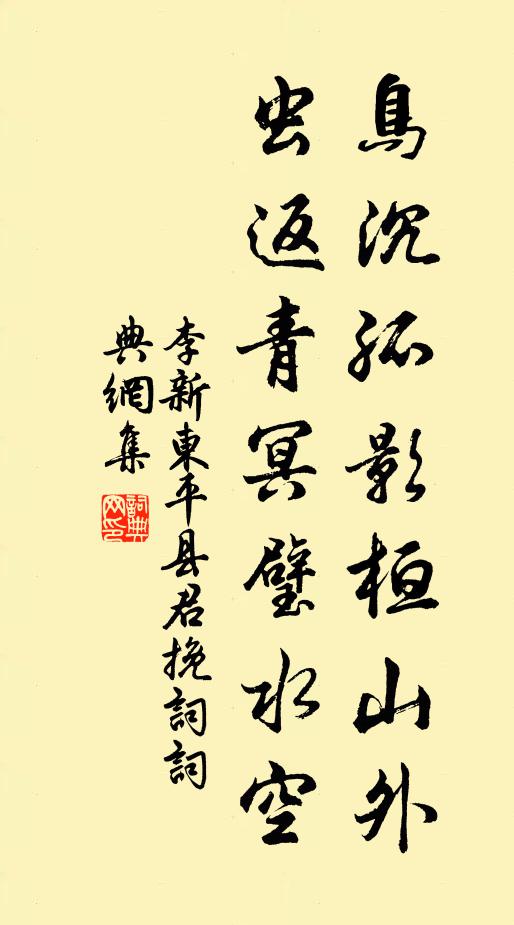 鳥沉孤影桓山外
虫返青冥璧水空
李新東平县君挽詞詞
典網集
詞典網印